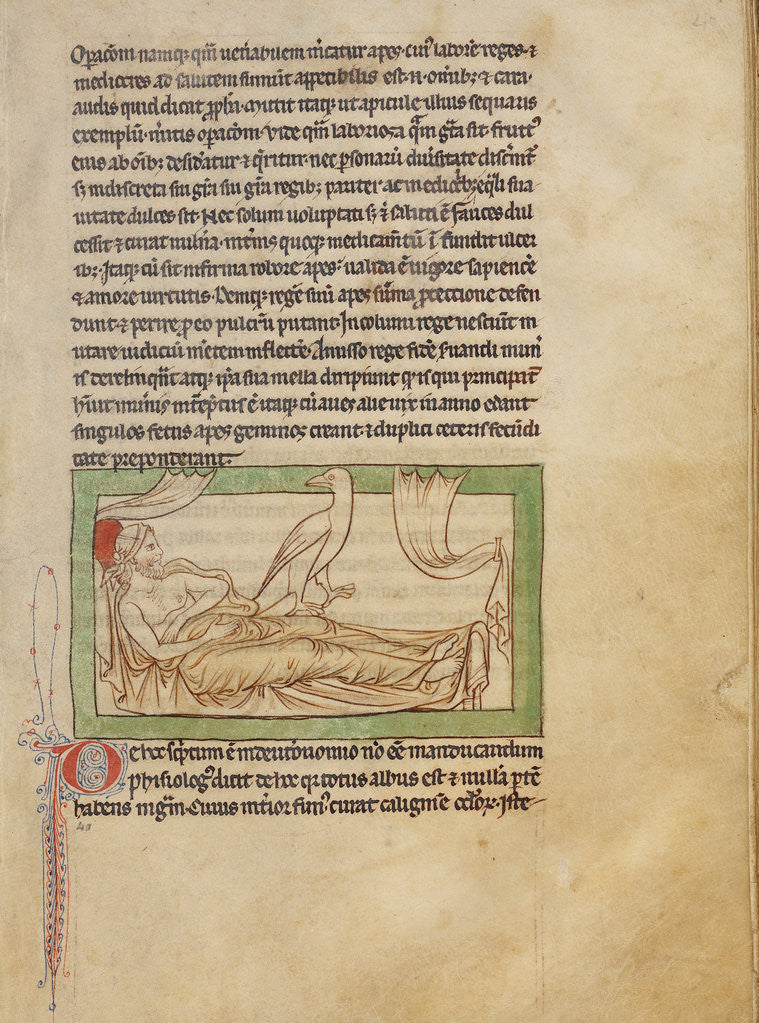 Opacōm namq; qm̄ uenabuem mcatur apes. cui' laborē reges. ⁊
mediocres ad salutem sumūt appetibilis est. n. omīb; ⁊ cara.
audis quid dicat ꝓph̄a. mittit itaq; ut apicule illius sequaris
exemplū. imitis opacōm. Vide qm̄ laboriosa qm̄ gr̄a sit. fruct'
eius ab oīb; desidatur ⁊ qritur. nec psonarū diu'sitate discnit
s; indiscreta sui gr̄a sui gr̄a regib; pariter ac mediocb; eq̄li sua
uitate dulces sit. Nec solum uoluptati s; ⁊ saluti ē. fauces dul
cessit ⁊ curat uuln̄a. int̄nis quoq; medicam̄tū īfundit ulcer
ib;. Itaq; cū sit infirma robore apes. ualida ē uigore sapiencie
⁊ amore uirtutis. Demq; regē suū apes sūma ꝓteccione defen
dunt. ⁊ perire ꝓ eo pulcrū putant. Incolumi rege nesciūt m
utare iudiciū. m̄tem inflectē. Amisso rege fidē suandi mun̄
is derelinqūt atq; ip̄a sua mella diripiunt. q is qui principatū
h̄uit mun̄is int̄eptus ē. itaq; cū aues alie uix in anno edant
singulos fetus apes geminos creant. ⁊ duplici ceteris fecūdi
tate preponderant.
De hoc sc̄ptum ē in deutonomio nō eē manducandum
phisiolog' dicit de hoc qr totus albus est ⁊ nullā ptē
habens nigm̄. Cuius int̄ior fim' curat caliginē oclorx. Iste
40